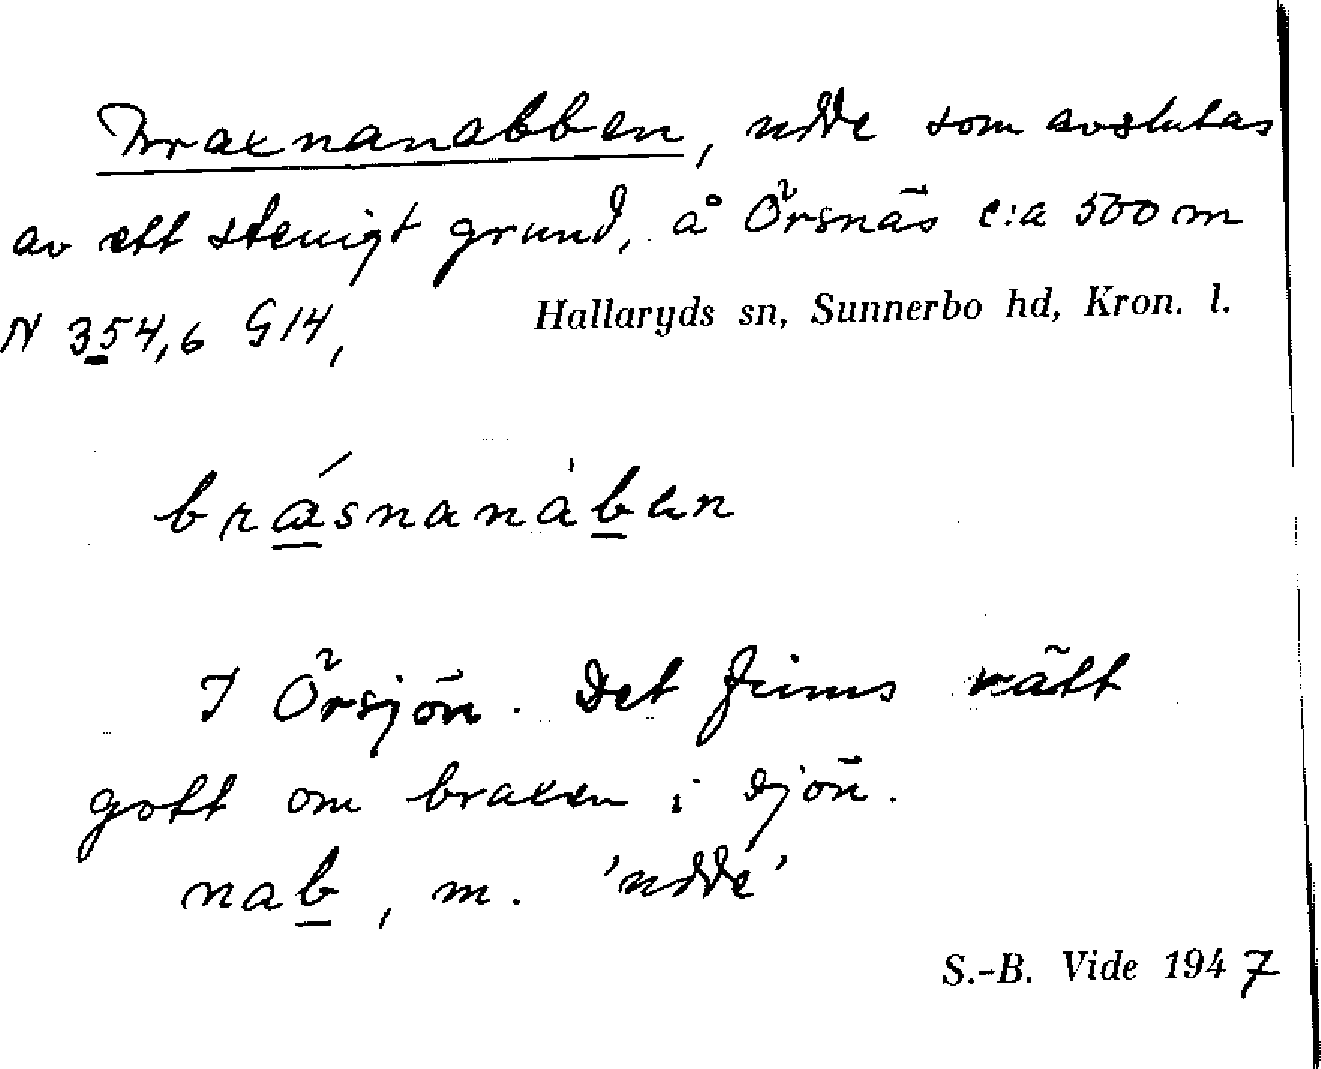 Braxnanabben, udde som avslutas
av ett stenigt grund, å Örsnäs c:a 500 m
N 354,6 G14,
Hallaryds sn, Sunnerbo hd, Kron. l.
brá̲snanàb̲en
I Örsjön. Det finns rätt
gott om braxen i sjön.
nab̲, m. 'udde'
S.-B. Vide 1947